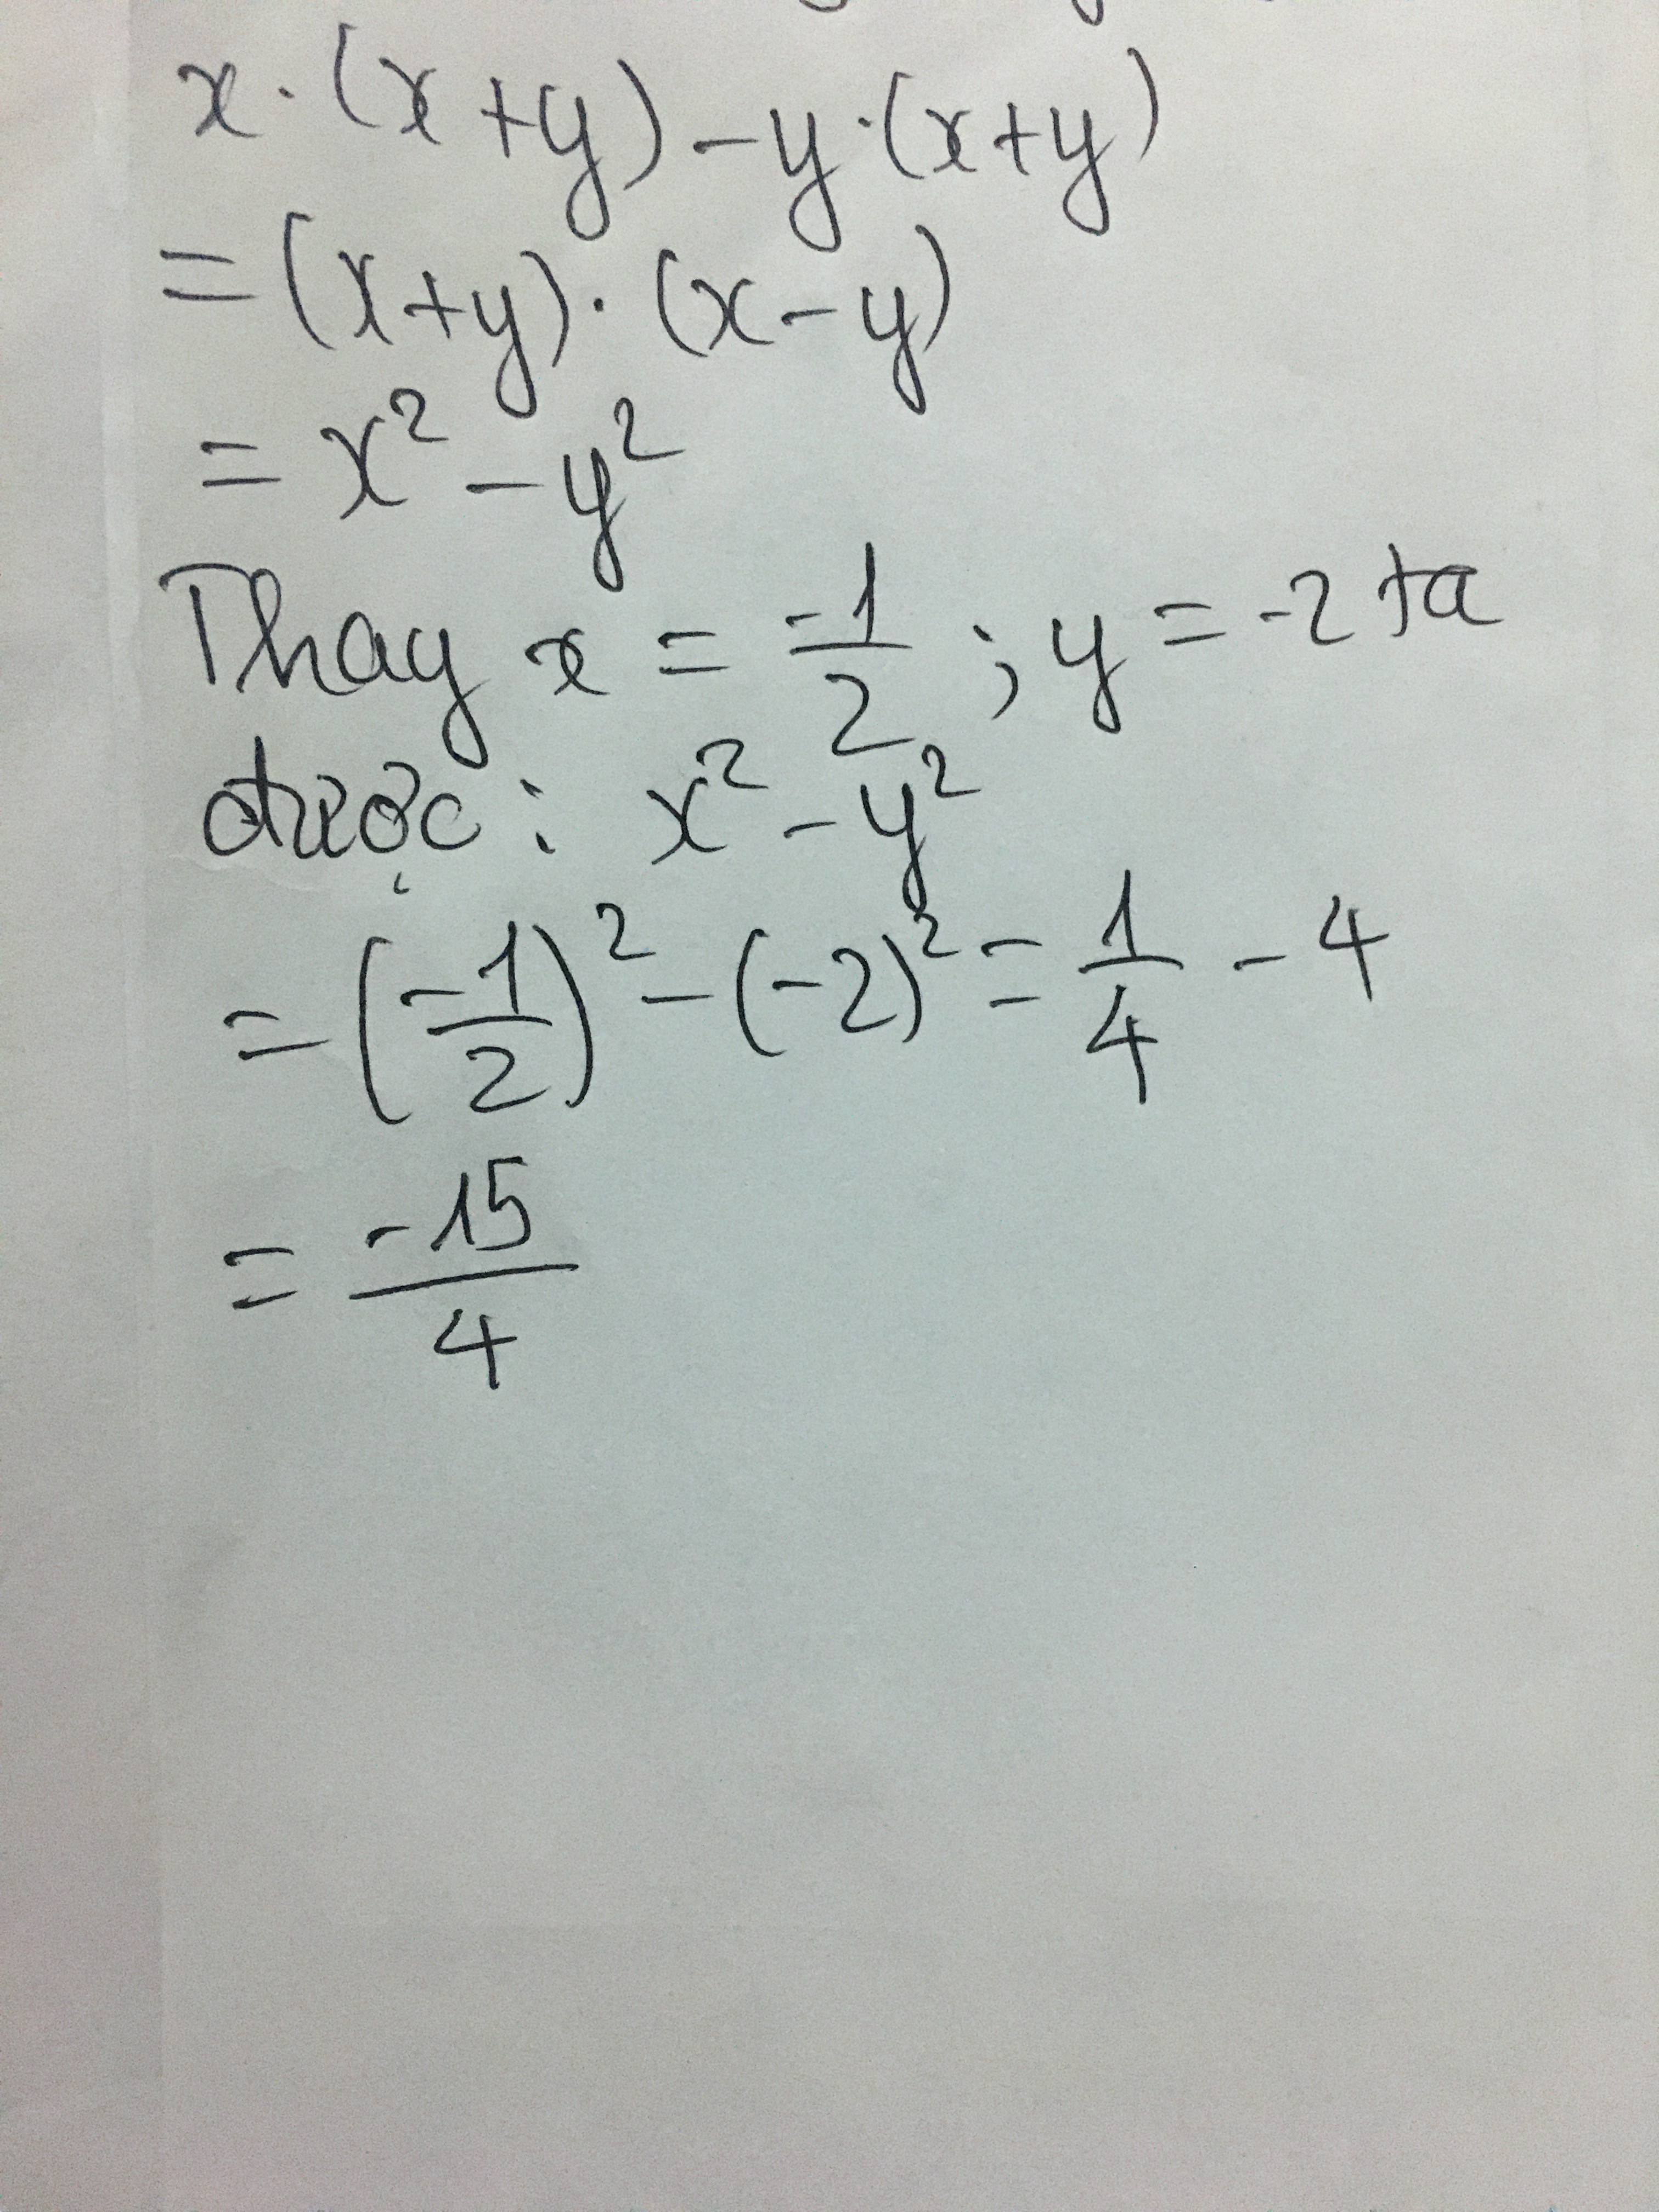 x.(x+y)-y.(x+y)
=(x+y).(x-y)
=x²-y²
Thay x=-1/2; y=-2 ta
được: x²-y²
=(-1/2)²-(-2)²=1/4-4
=-15/4